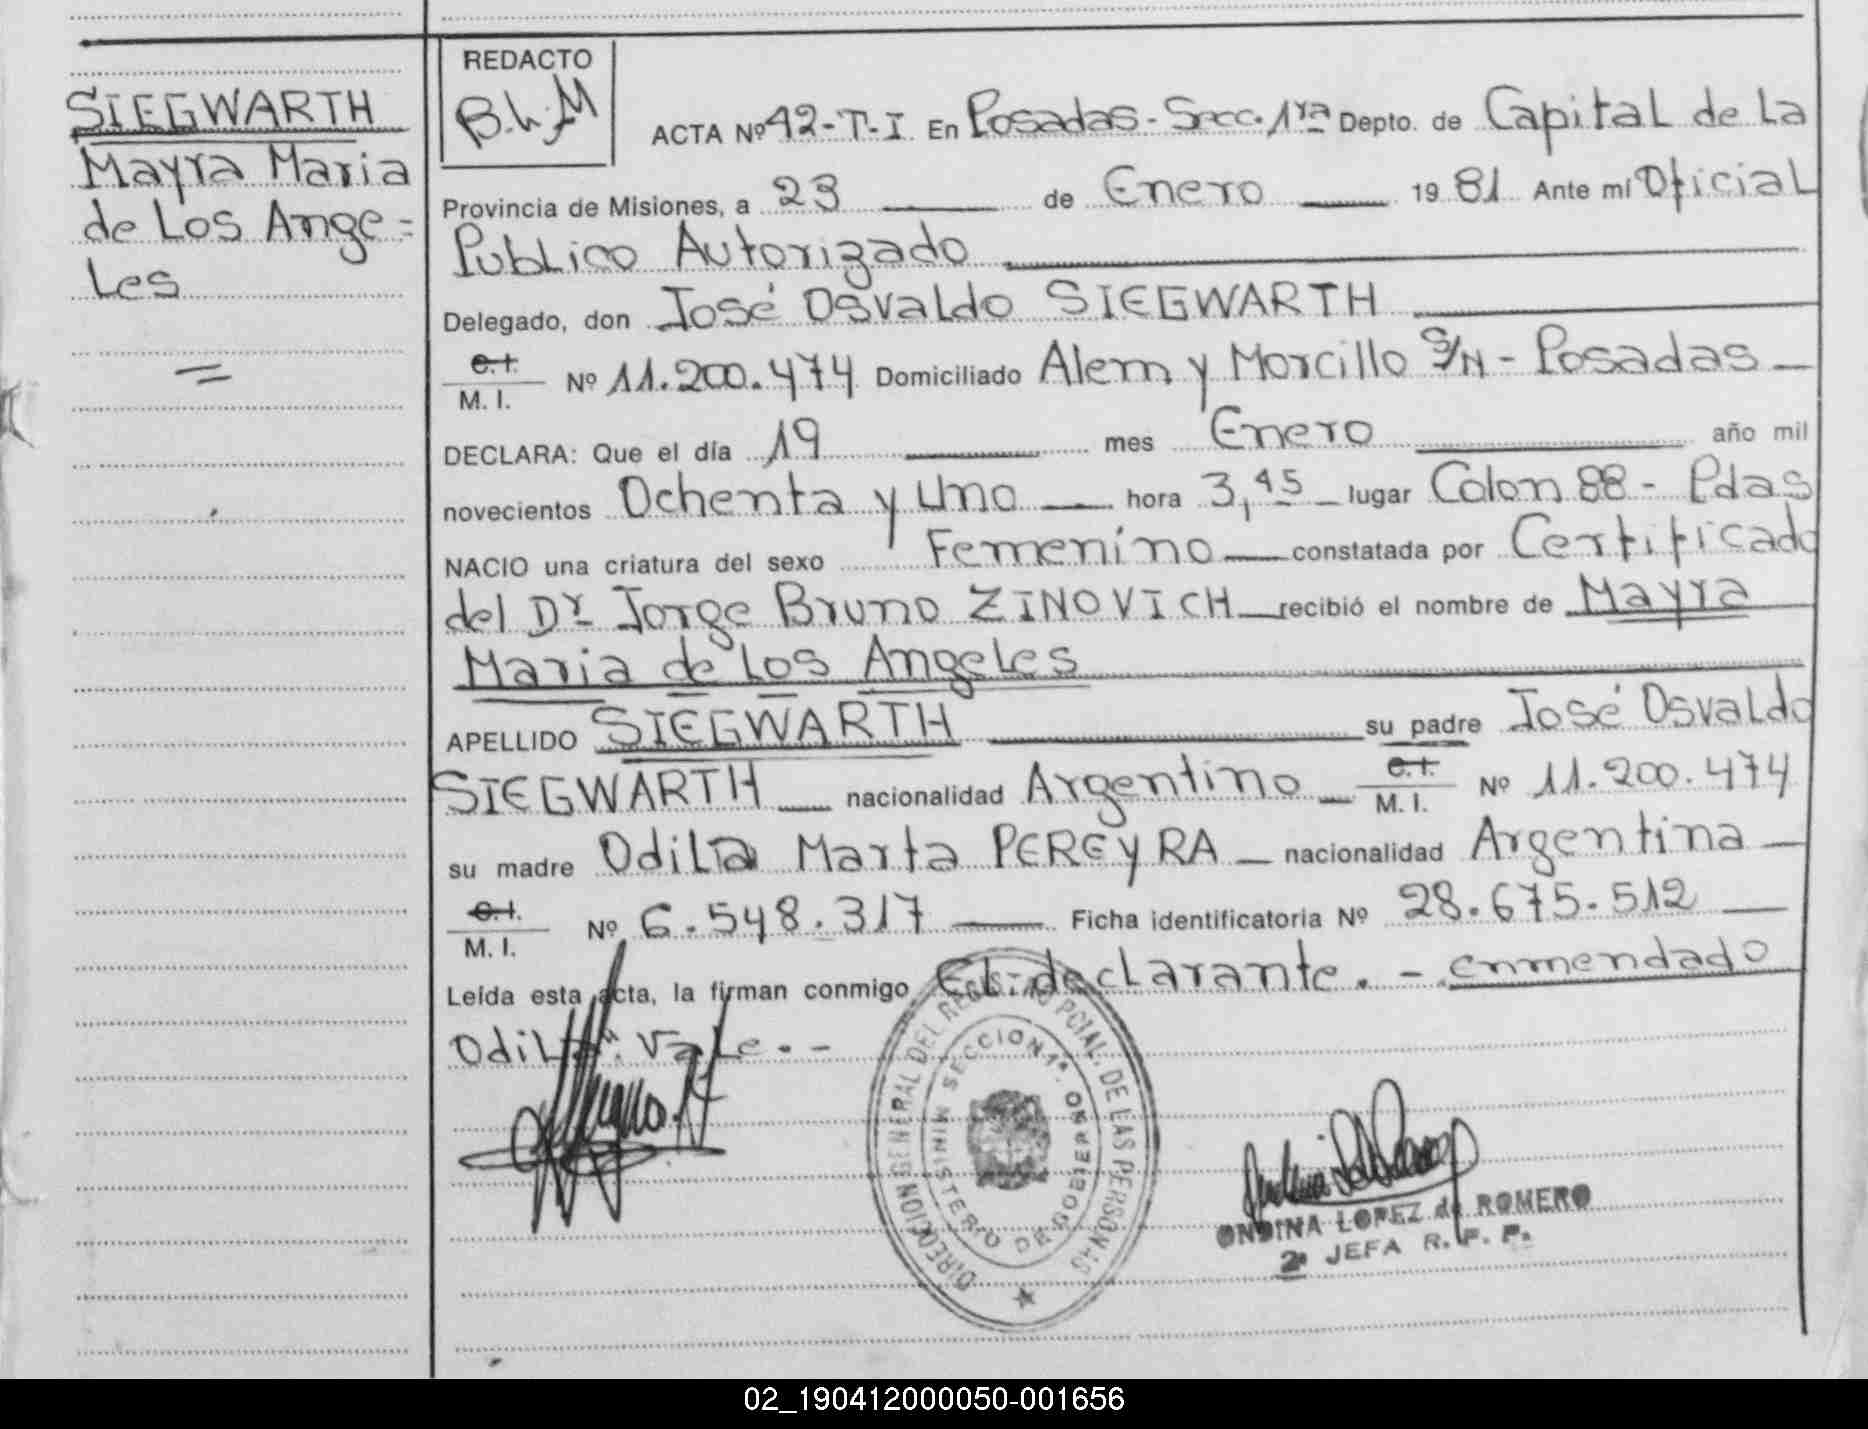 SIEGWARTH
Mayra Maria
de Los Ange=
Les
REDACTO
B.L.M
ACTA Nº 42-T-I En Posadas-Secc.1ra Depto. de Capital de La
Provincia de Misiones, a 23 de Enero 1981 Ante mí Oficial
Publico Autorizado
Delegado, don José Osvaldo SIEGWARTH
C.I.
M. I. Nº 11.200.474 Domiciliado Alem y Morcillo S/N - Posadas
DECLARA: Que el día 19 mes Enero año mil
novecientos Ochenta y uno hora 3,45 lugar Colon 88 - Pdas
NACIO una criatura del sexo Femenino constatada por Certificado
del Dr Jorge Bruno ZINOVICH recibió el nombre de Mayra
Maria de Los Angeles
APELLIDO SIEGWARTH su padre José Osvaldo
SIEGWARTH nacionalidad Argentino C.I. M. I. Nº 11.200.474
su madre Odilia Marta PEREYRA nacionalidad Argentina
C.I.
M. I. Nº 6.548.317 Ficha identificatoria Nº 28.675.512
Leída esta acta, la firman conmigo EL declarante. - enmendado
Odilia". Vale. -
DIRECCION GENERAL DEL REGISTRO PCIAL. DE LAS PERSONAS
SECCION 1ª.
MINISTERIO DE GOBIERNO
ONDINA LOPEZ de ROMERO
2ª JEFA R. P. P.
02_190412000050-001656